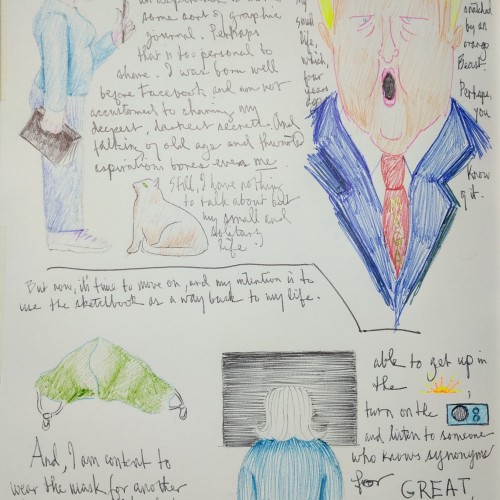 some sort of graphic
journal. Perhaps
that is too personal to
share. I was born well
before Facebook and am not
accustomed to sharing my
deepest, darkest secrets. And
talking of old age and thwarted
aspirations bores even me.
Still, I have nothing
to talk about but
my small and
solitary
life.
my
good
life,
which,
four
years
ago
snatched
by an
orange
Beast.
Perhaps
you
know
of it.
But now, it's time to move on, and my intention is to
use the sketchbook as a way back to my life.
And, I am content to
wear the mask for another
able to get up in
the ,
turn on the
and listen to someone
who knows synonyms
for GREAT,